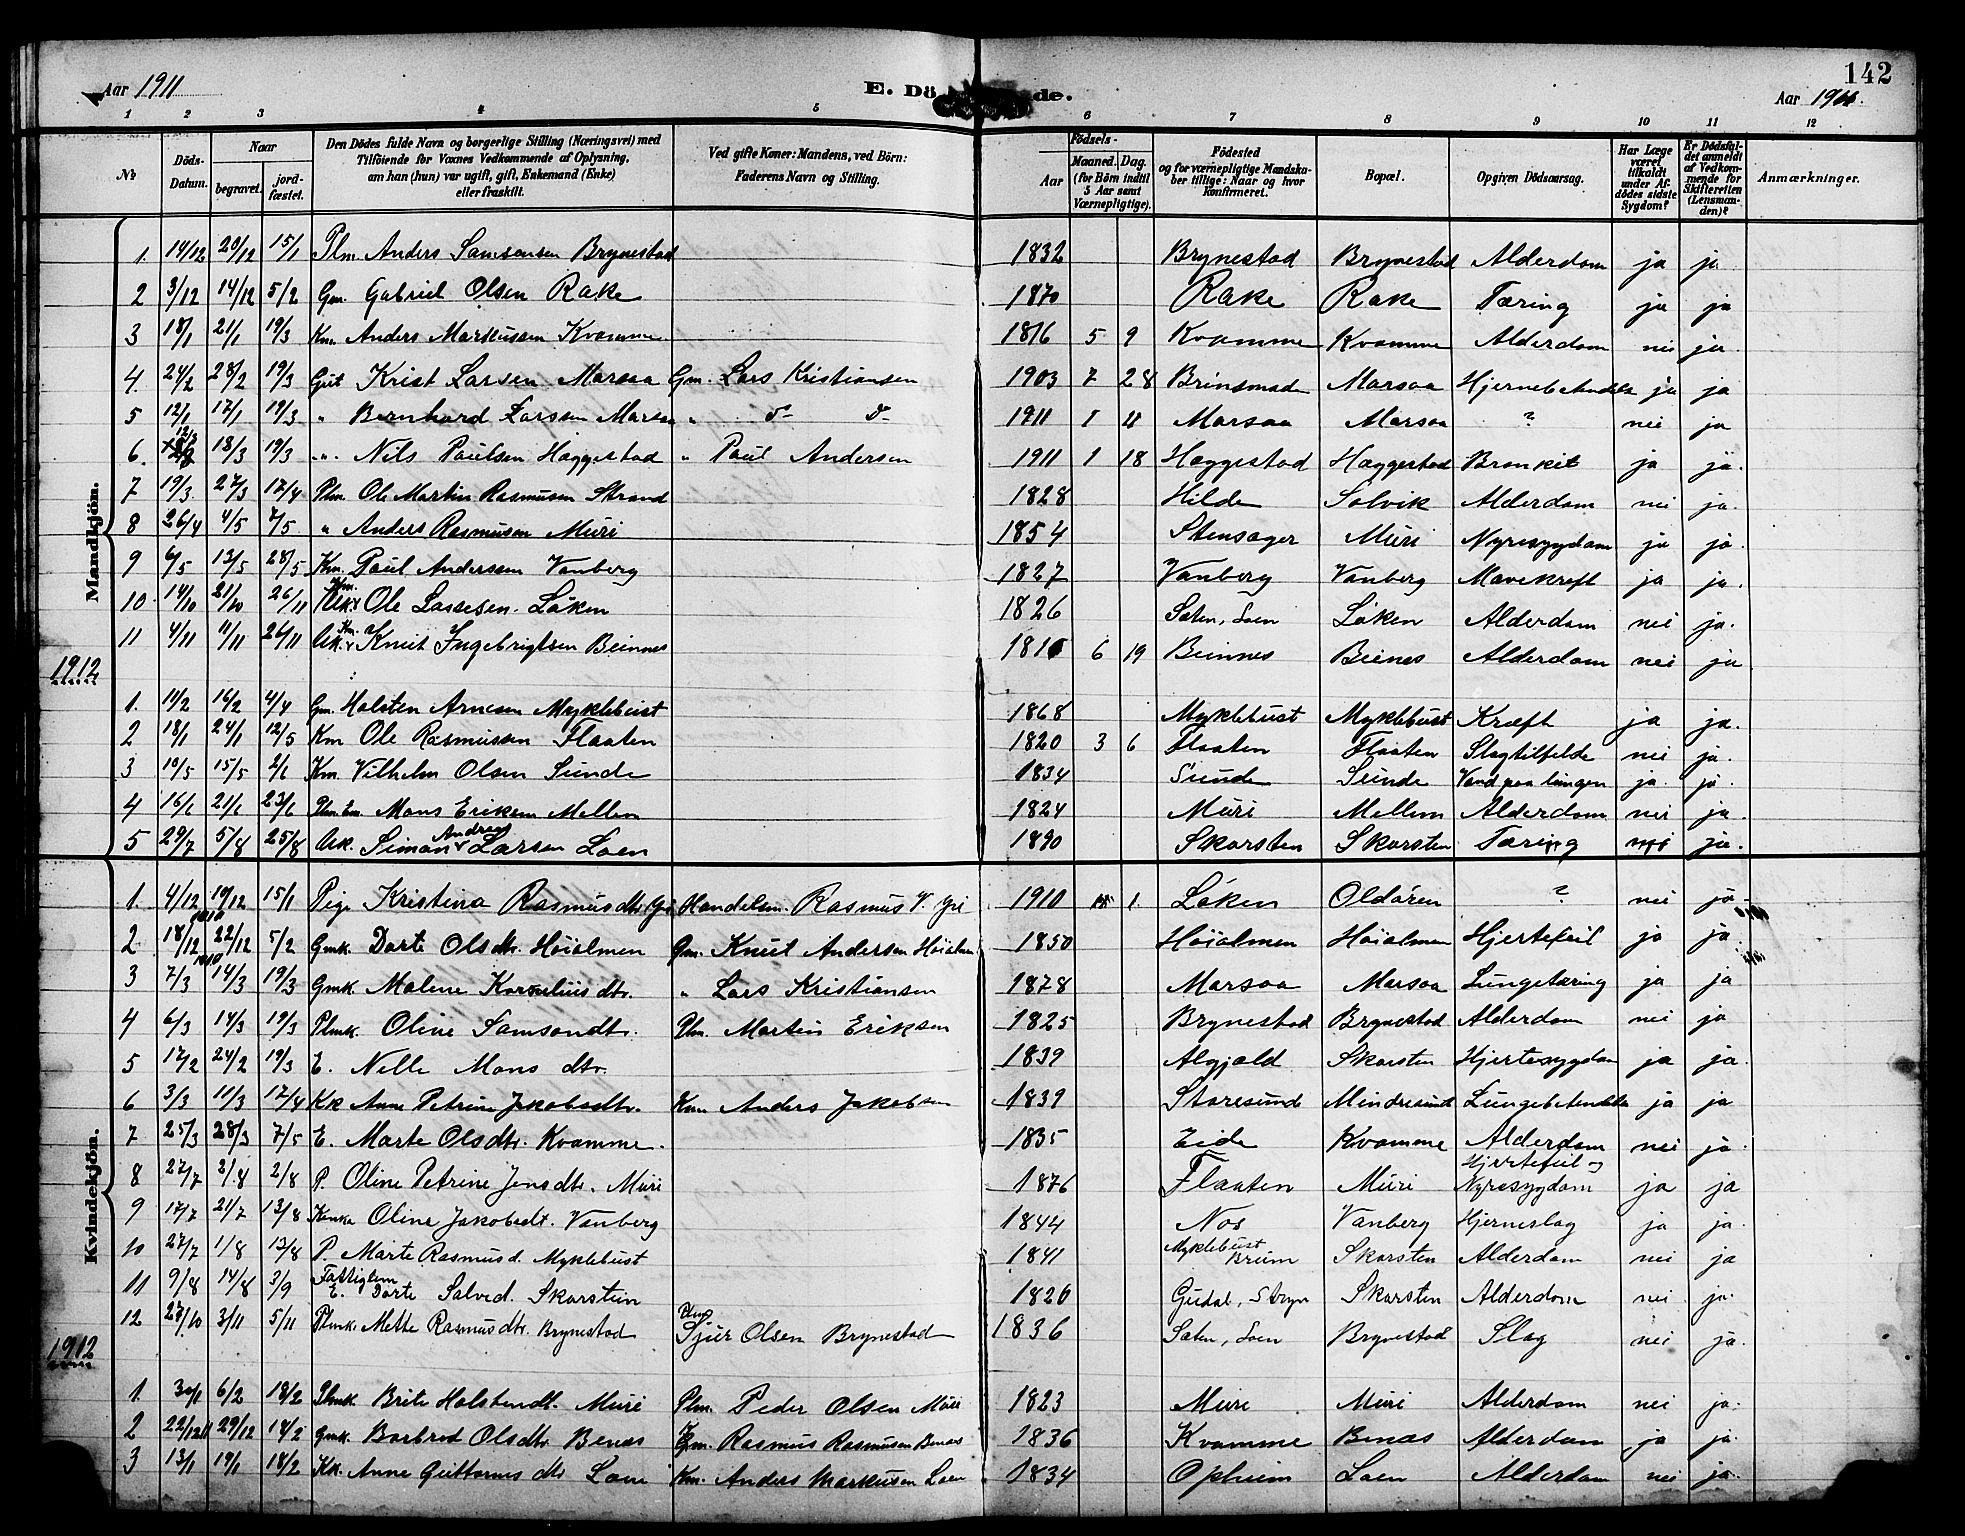 142
Aar 1911
E. Dö de.
Aar 19
1 2 3 4 5 6 7 8 9 10 11 12
No
Döds-Datum.
Naar
begravet.
jord-fæstet.
Den Dödes fulde Navn og borgerlige Stilling (Næringsvei) med
Tilföiende for Voxnes Vedkommende af Oplysning,
om han (hun) var ugift, gift, Enkemand (Enke)
eller fraskilt.
Ved gifte Koner: Mandens, ved Börn:
Faderens Navn og Stilling.
Födsels-
Aar
Maaned. Dag.
(for Börn indtil
5 Aar samt
Værnepligtige).
Födested
og for værnepligtige Mandska-
ber tillige: Naar og hvor
Konfirmeret.
Bopæl.
Opgiven Dödsaarsag.
Har Læge
været
tilkaldt
under Af-
dödes sidste
Sygdom?
Er Dödsfal-
det anmeldt
af Vedkom-
mende for
Skifteretten
(Lensman-
den)?
Anmærkninger.
Mandkjön.
1. 14/12 20/12 15/1 Plm. Anders Samsonsen Brynestad 1832 Brynestad Brynestad Alderdom ja ja
2 3/12 14/12 5/2 Gm. Gabriel Olsen Rake 1870 Rake Rake Tæring ja ja
3 18/1 21/1 19/3 Km. Anders Markussen Kvamme 1816 5 9 Kvamme Kvamme Alderdom nei ja.
4. 24/2 28/2 19/3 Gut Krist Larsen Marsaa Gm. Lars Kristiansen 1903 7 28 Marsaa ja ja
5 12/1 17/1 19/3 " Bernhard Larssen Marsaa " d- d- 1911 1 Marsaa Marsaa ? nei ja
6. 18/3 19/3 " Nils Paulsen Haggestad " Paul Andersen 1911 1 18 Haggestad Haggestad Bronkit ja ja.
7 19/3 27/3 17/4 Plm. Ole Martin Rasmusen Strand 1828 Hilde Solvik Alderdom nei ja.
8 26/4 4/5 7/5 " Anders Rasmusen Muri 1854 Stensager Muri Nyresygdom ja ja.
9 6/5 13/5 28/5 Km. Paul Andersen Vanberg 1827 Vanberg Vanberg Mavekreft ja ja.
10. 14/10 21/10 26/11 Km. Ole Lassesen Löken 1826 Saten, Loen Löken Alderdom nei ja.
11 4/11 11/11 26/11 Km. Knut Ingebrigtsen Beinnes 6 19 Beinnes Beines Alderdom nei ja
1912
1. 11/2 16/2 4/4 Gm. Holsten Arnesen Myklebust 1868 Myklebust Myklebust Kræft ja ja.
2 18/1 24/1 12/5 Km Ole Rasmussen Flaaten 1820 3 6 Flaaten Flaaten Slagtilfelde nei ja.
3 10/5 15/5 2/6 Km. Vilhelm Olsen Sunde 1834 Sunde Sunde Vand paa lungen ja ja.
4 16/6 21/6 23/6 Plm. Em. Mons Eriksen Mellem 1824 Muri Mellem Alderdom nei ja.
5 29/7 5/8 25/8 Uk. Simon Andreas Larsen Loen 1890 Skarsten Skarsten Tæring ja.
Kvindekjön.
1. 4/12 1910 10/12 15/1 Pige Kristina Rasmusdtr Gri Handelsm. Rasmus V. Gri 1910 1. Löken Oldören ? nei ja
2 18/12 1910 22/12 5/2 Gmk. Dorte Olsdtr. Höialmen Gm. Knut Andersen Höialmen 1850 Höialmen Höialmen Hjertefeil ja ja
3 7/3 14/3 19/3 Gmk. Malene Korneliusdtr. " Lars Kristiansen 1878 Marsaa Marsaa Lungetæring ja ja
4 6/3 14/3 19/3 Plmk. Oline Samsondtr. Plm. Martin Eriksen 1825 Brynestad Brynestad Alderdom nei ja
5 17/2 24/2 19/3 E. Nille Mons dtr. 1839 Algjeld Skarsten Hjertesygdom ja ja.
6 3/3 11/3 17/4 Kk Anne Petrine Jakobsdtr. Km. Anders Jakobsen 1839 Storesunde Mindresunde Lungebetendelse ja ja
7 25/3 28/3 7/5 E. Marte Olsdtr. Kvamme. 1835 Eide Kvamme Alderdom nei ja.
8 27/7 2/8 2/8 P. Oline Petrine Jensdtr. Muri 1876 Flaaten Muri Hjertefeil og Nyresygdom ja ja
9 17/7 21/7 13/8 Oline Jakobsdt. Vanberg 1844 Nos Vanberg Hjerneslag ja ja.
10 27/7 1/8 13/8 P. Marte Rasmusd. Myklebust 1841 Myklebust Breim Skarsten Alderdom nei ja
11 9/8 14/8 3/9 Fattiglem E. Dorte Salved. Skarstein 1820 Gudal, Stryn Skarsten Alderdom nei ja.
12 27/10 3/11 5/11 Plmk. Mette Rasmusdtr. Brynestad Plm Sjur Olsen Brynestad 1836 Saten, Loen Brynestad Slag nei ja.
1912
1. 30/1 6/2 18/2 Plmk Brite Holstendt. Muri Plm. Peder Olsen Muri 1823 Muri Muri Alderdom nei ja.
2 22/12 29/12 14/2 Gmk. Barbrod Olsdtr Benæs Gm. Rasmus Rasmusen Benæs 1836 Kvamme Benæs Alderdom ja ja.
3 13/1 19/1 18/2 Kk. Anne Guttorms dtr Loen Km. Anders Markusen Loen 1834 Opheim Loen Alderdom nei ja.